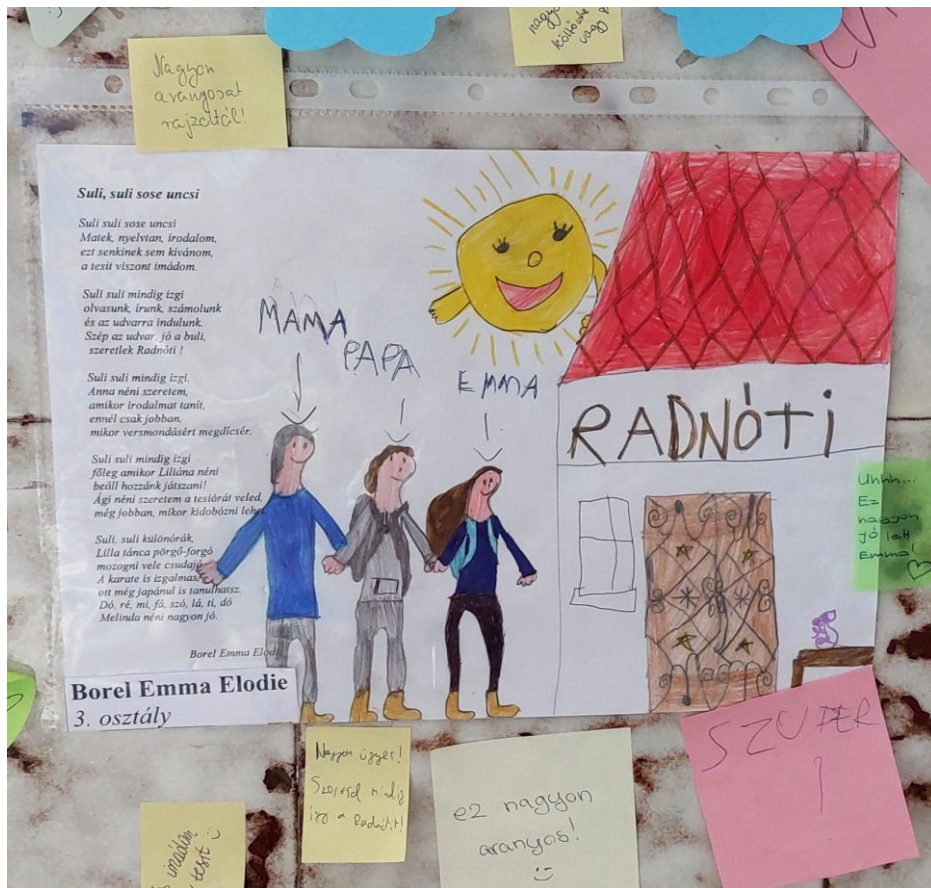 nagyon
vagy
Nagyon
aranyosat
rajzoltál!
Suli, suli sose uncsi
Suli suli sose uncsi
Matek, nyelvtan, irodalom,
ezt senkinek sem kívánom,
a tesit viszont imádom.
Suli suli mindig izgi
olvasunk, írunk, számolunk
és az udvarra indulunk.
Szép az udvar, jó a buli,
szeretlek Radnóti !
Suli suli mindig izgi,
Anna néni szeretem,
amikor irodalmat tanít,
ennél csak jobban,
mikor versmondásért megdicsér.
Suli suli mindig izgi
főleg amikor Liliána néni
beáll hozzánk játszani!
Ági néni szeretem a tesiórát veled,
még jobban, mikor kidobózni
Suli, suli különórák,
Lilla tánca pörgő-forgó
mozogni vele
A karate is izgalmas,
ott még japánul is tanulhatsz.
Dó, ré, mi, fá, szó, lá, ti, dó
Melinda néni nagyon jó.
Borel Emma
MAMA
PAPA
EMMA
RADNÓTI
Uhhh...
Ez
nagyon
jó lett
Emma!
Borel Emma Elodie
3. osztály
Nagyon ügyes!
Szeresd mindig
így a Radnótit!
ez nagyon
aranyos!
SZUPER
!
imádom
tesit